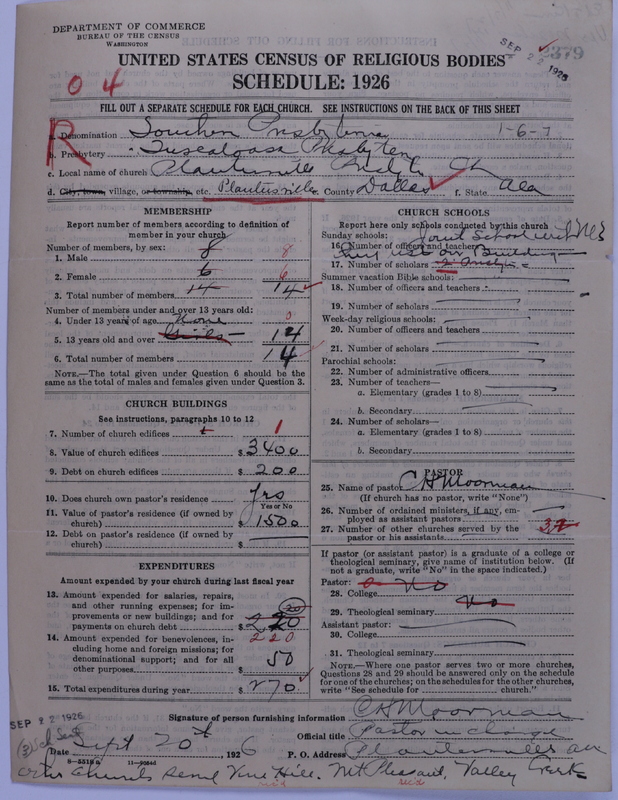 DEPARTMENT OF COMMERCE
BUREAU OF THE CENSUS
WASHINGTON
SEP 22 1926
2379
UNITED STATES CENSUS OF RELIGIOUS BODIES
SCHEDULE: 1926
0 4
FILL OUT A SEPARATE SCHEDULE FOR EACH CHURCH. SEE INSTRUCTIONS ON THE BACK OF THIS SHEET
R
a. Denomination Southern Presbyterian 1-6-7
b. Presbytery Tuscaloosa Presbytery
c. Local name of church Plantersville Presbyt Ch
d. City, town, village, or township, etc. Plantersville County Dallas f. State Ala
MEMBERSHIP
Report number of members according to definition of member in your church
Number of members, by sex:
1. Male 8 8
2. Female 6 6
3. Total number of members 14 14
Number of members under and over 13 years old:
4. Under 13 years of age None 0
5. 13 years old and over Girls 14
6. Total number of members 14
NOTE.—The total given under Question 6 should be the same as the total of males and females given under Question 3.
CHURCH BUILDINGS
See instructions, paragraphs 10 to 12
7. Number of church edifices 1 1
8. Value of church edifices $ 3400
9. Debt on church edifices $ 200
10. Does church own pastor's residence Yes
Yes or No
11. Value of pastor's residence (if owned by church) $ 1500
12. Debt on pastor's residence (if owned by church) $
EXPENDITURES
Amount expended by your church during last fiscal year
13. Amount expended for salaries, repairs, and other running expenses; for improvements or new buildings; and for payments on church debt $ 220
220
14. Amount expended for benevolences, including home and foreign missions; for denominational support; and for all other purposes $ 50
15. Total expenditures during year $ 270
CHURCH SCHOOLS
Report here only schools conducted by this church
Sunday schools: Joint School with M E
16. Number of officers and teachers
They use our Building
17. Number of scholars
Summer vacation Bible schools:
18. Number of officers and teachers
19. Number of scholars
Week-day religious schools:
20. Number of officers and teachers
21. Number of scholars
Parochial schools:
22. Number of administrative officers
23. Number of teachers—
a. Elementary (grades 1 to 8)
b. Secondary
24. Number of scholars—
a. Elementary (grades 1 to 8)
b. Secondary
PASTOR
25. Name of pastor C H Moorman
(If church has no pastor, write "None")
26. Number of ordained ministers, if any, employed as assistant pastors
27. Number of other churches served by the pastor or his assistant 3
If pastor (or assistant pastor) is a graduate of a college or theological seminary, give name of institution below. (If not a graduate, write "No" in the space indicated.)
Pastor:
28. College No
29. Theological seminary No
Assistant pastor:
30. College
31. Theological seminary
NOTE.—Where one pastor serves two or more churches, Questions 28 and 29 should be answered only on the schedule for one of the churches; on the schedules for the other churches, write "See schedule for church."
SEP 22 1926
Signature of person furnishing information C H Moorman
Official title Pastor in charge
Date Sept 20th, 1926 P. O. Address Plantersville Ala
8-5518a 11-9084d
other Churches served Vine Hill. Mt Pleasant, Valley Creek